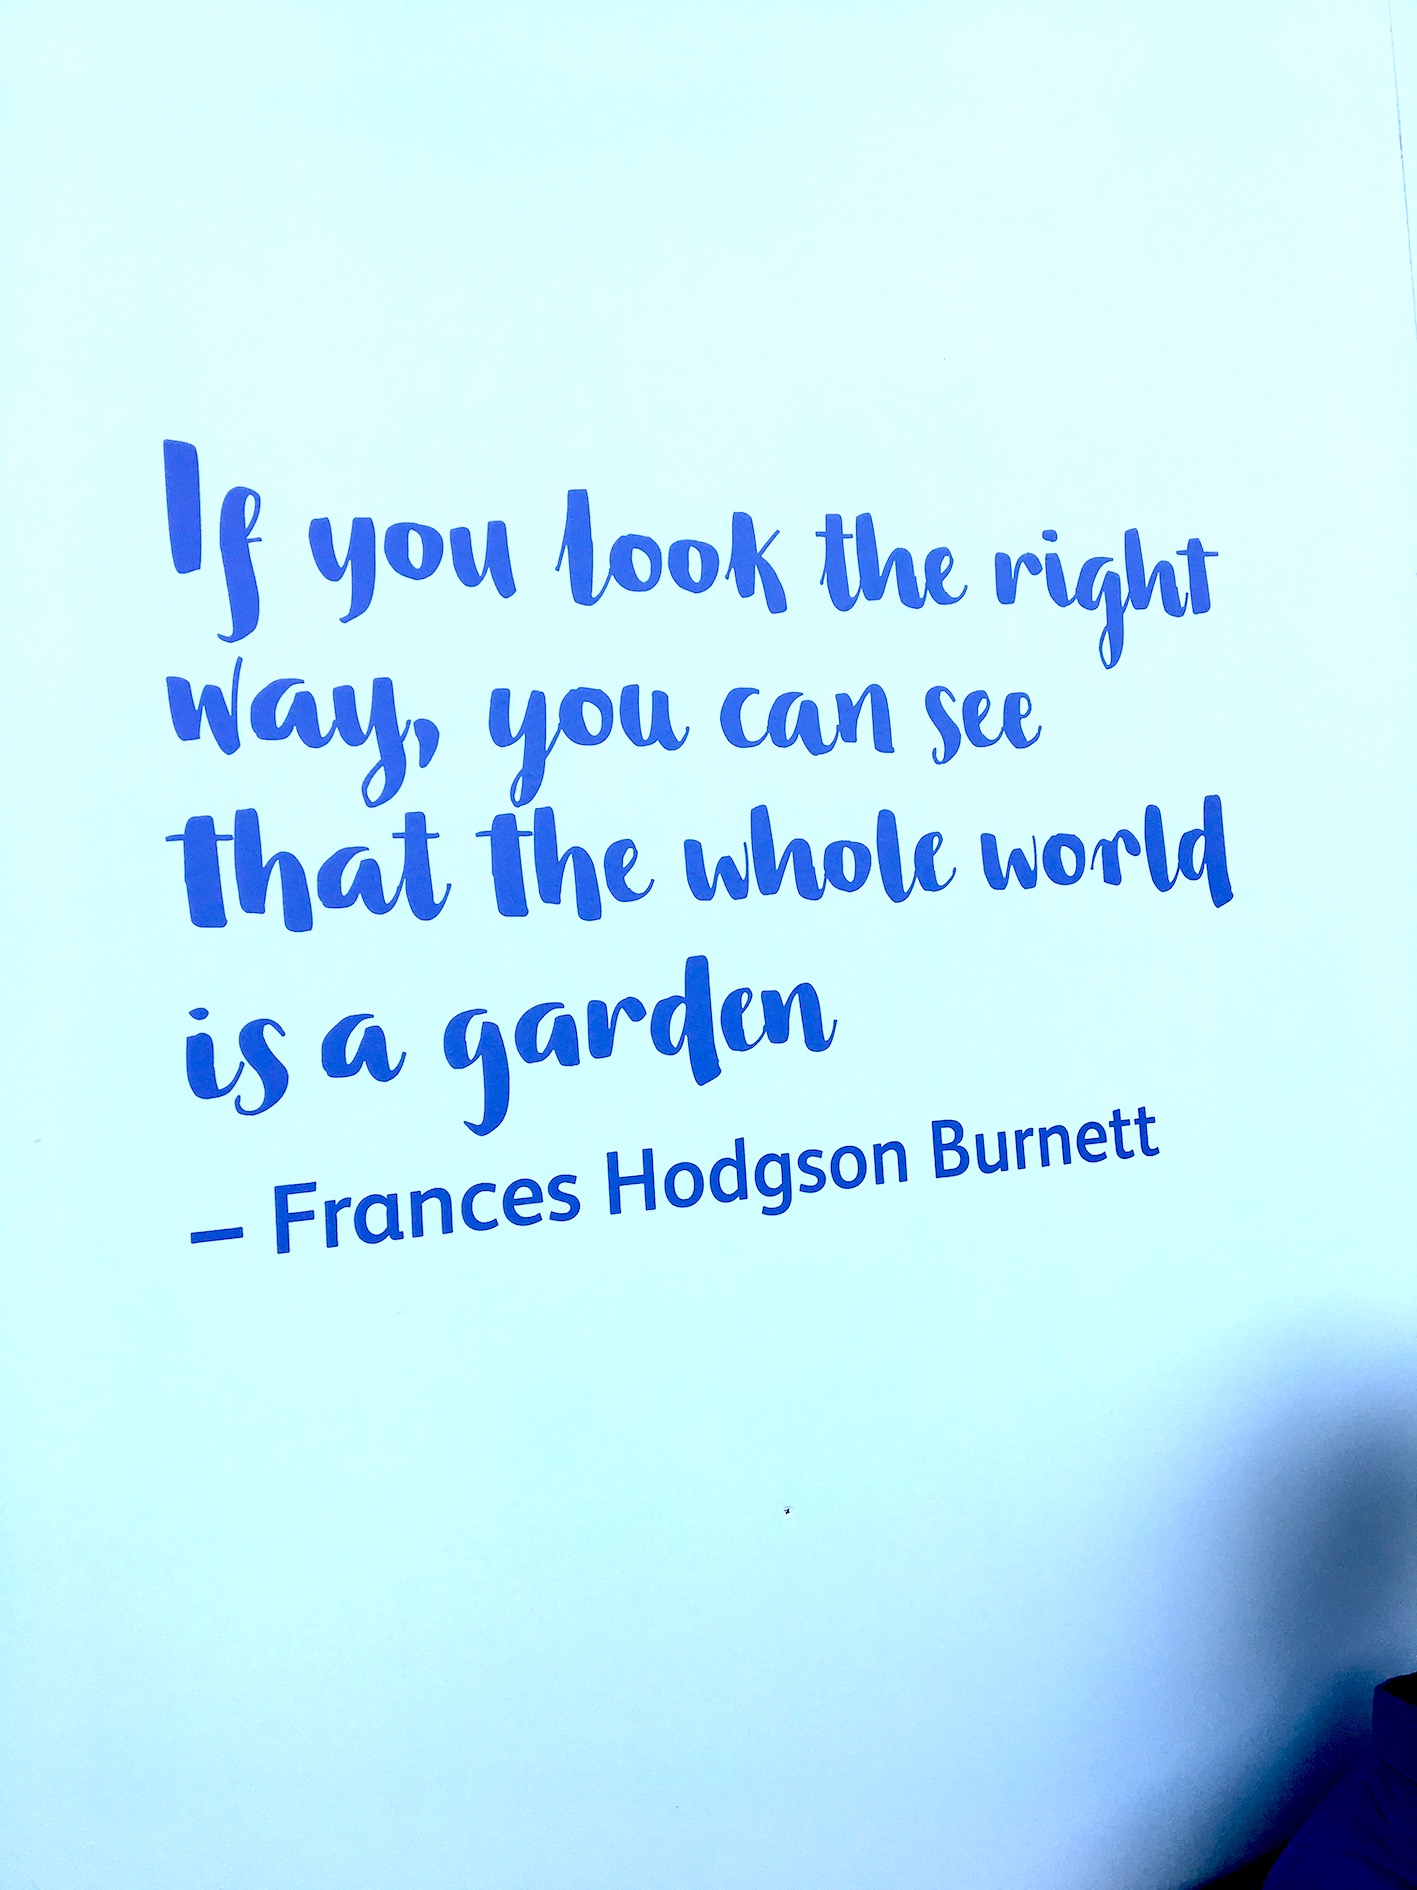 If you look the right
way, you can see
that the whole world
is a garden
– Frances Hodgson Burnett